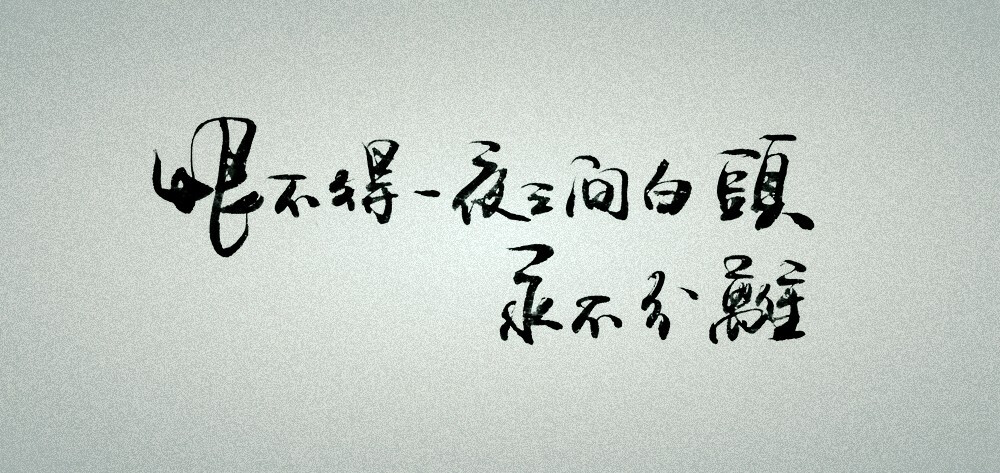 恨不得一夜之间白頭
永不分離